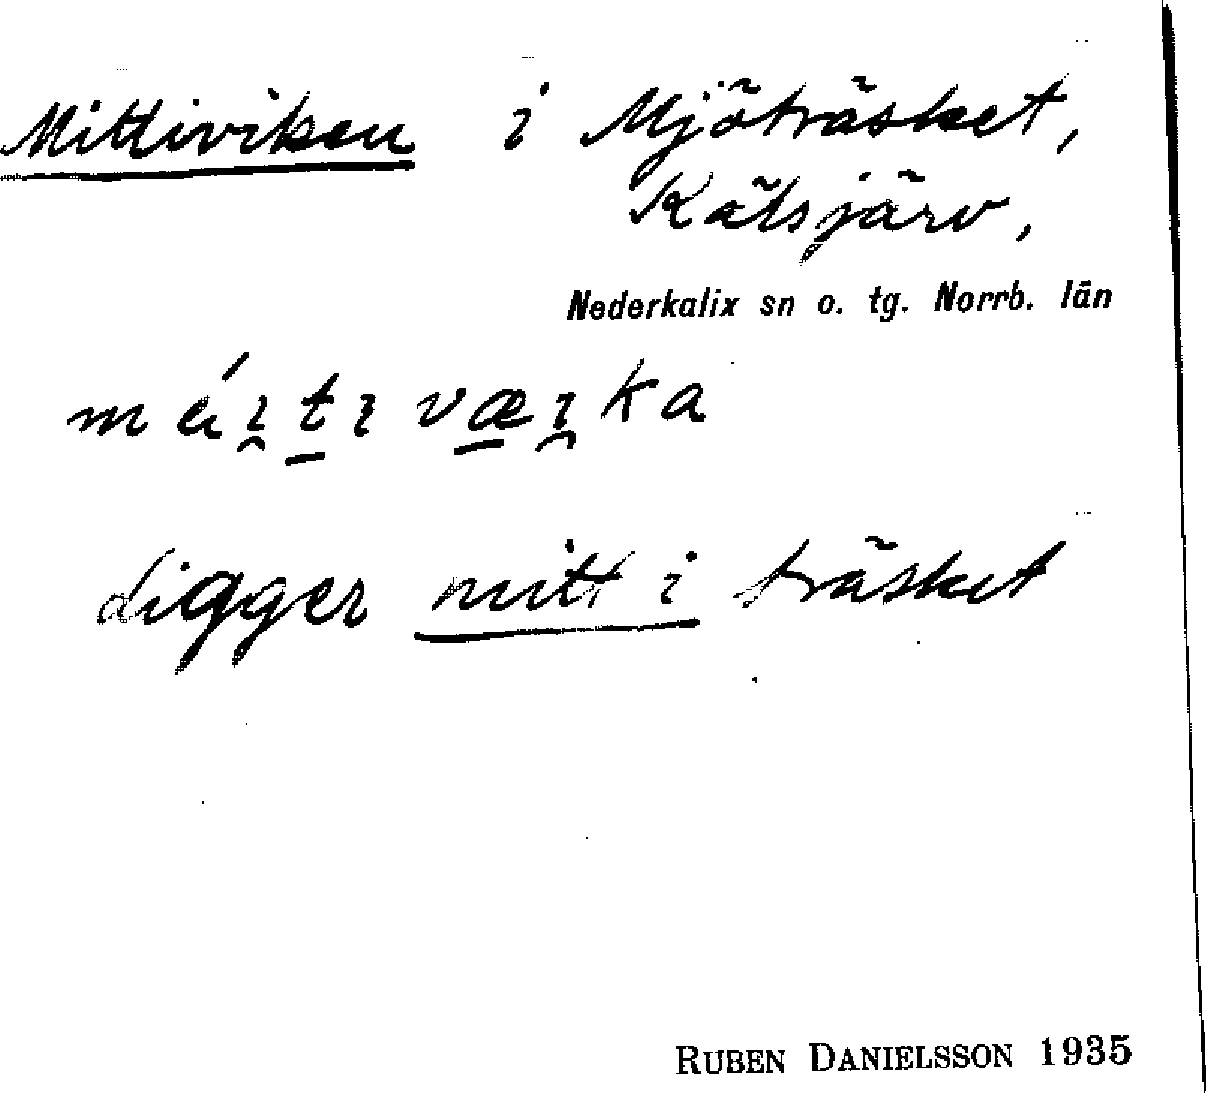 Mittiviken i Mjöträsket,
Kälsjärv,
Nederkalix sn o. tg. Norrb. län
ligger mitt i träsket
RUBEN DANIELSSON 1935